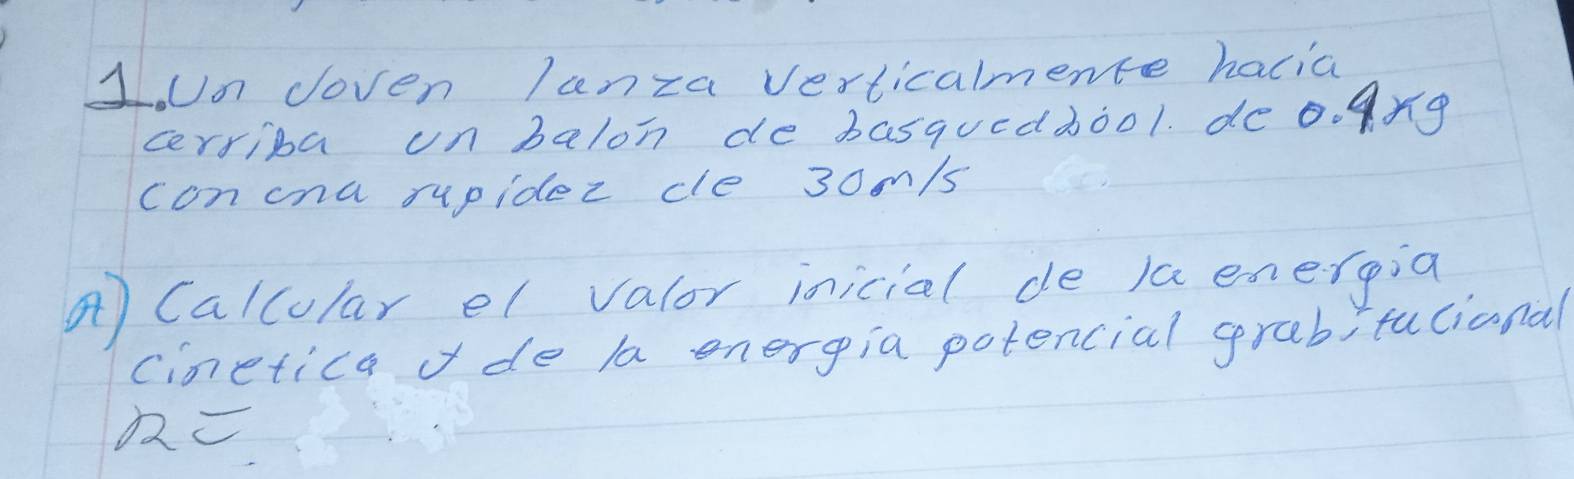 1. Un Joven lanza verticalmente hacia
arriba un balón de basquedbool. de 0.4 kg
con una rapidez de 30m/s
A) Calcular el valor inicial de la energia
cinetica y de la energía potencial grabitucional
R=